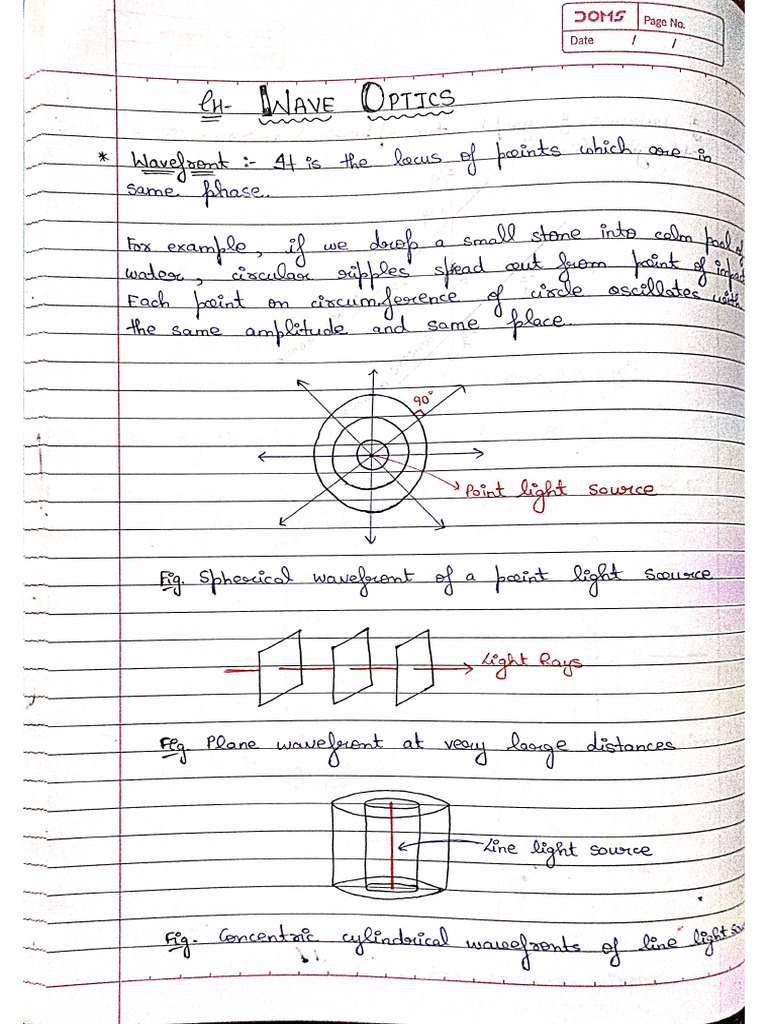 DOMS
Page No.
Date / /
CH- WAVE OPTICS
* Wavefront :- It is the locus of points which are in
same phase.
For example, if we drop a small stone into calm pool of
water, circular ripples spread out from point of impact
Each point on circumference of circle oscillates with
the same amplitude and same place.
90°
Point light source
Fig. Spherical wavefront of a point light source
Light Rays
Fig Plane wavefront at very large distances
Line light source
Fig. Concentric cylindrical wavefronts of line light